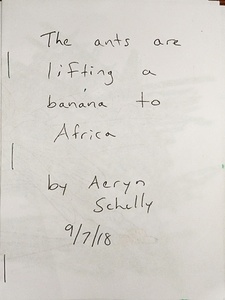 The ants are
lifting a
banana to
Africa
by Aeryn
Schelly
9/7/18